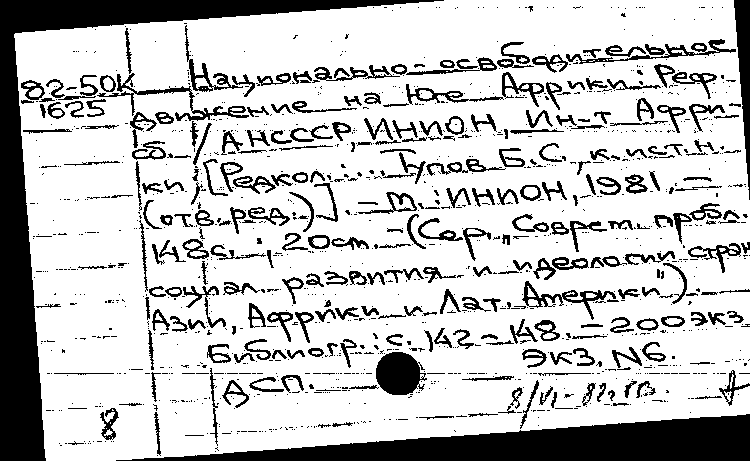 82-50К Национально-освободительное
1625 движение на Юге Африки: Реф.
сб. / АНСССР, ИНИОН, Ин-т Афри-
ки; [Редкол.:... Тупов Б.С., к.ист.н.
(отв.ред.)]. – М.: ИНИОН, 1981. –
148с.; 20см. – (Сер. „Соврем. пробл.
социал. развития и идеологии стран
Азии, Африки и Лат. Америки").
Библиогр.: с. 142 – 148. – 200экз
ЭКЗ. N6.
ДСП.
8/VI - 82г.
8